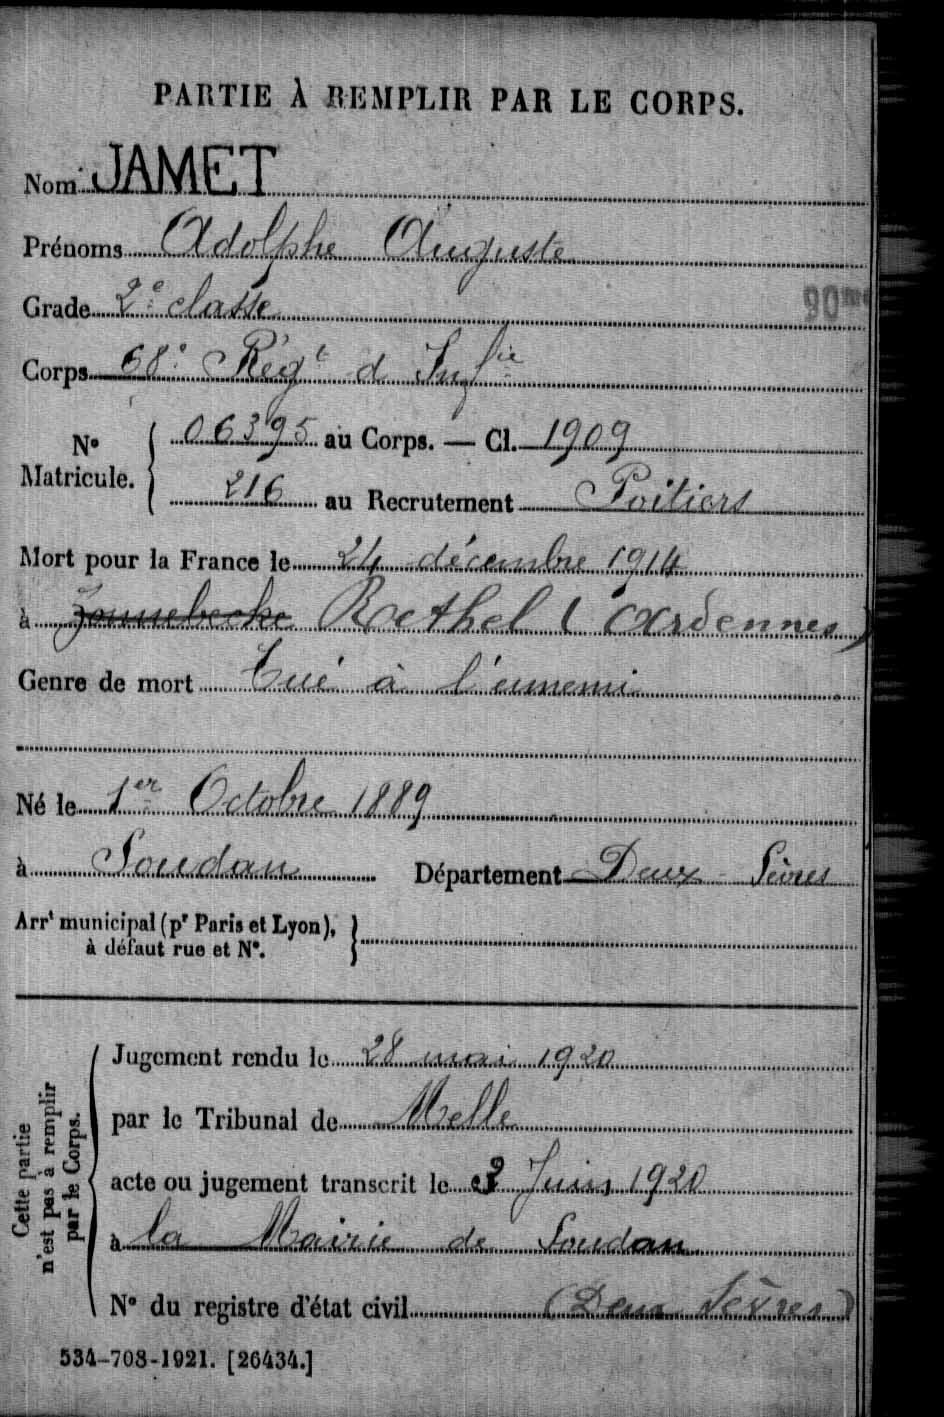 PARTIE À REMPLIR PAR LE CORPS.
Nom JAMET
Prénoms Adolphe Auguste
Grade 2e classe
90me
Corps 68e Régt d' Infie
No Matricule. { 06395 au Corps. — Cl. 1909
216 au Recrutement Poitiers
Mort pour la France le 24 décembre 1914
à Zonnebecke Rethel (Ardennes)
Genre de mort Tué à l'ennemi
Né le 1er Octobre 1889
à Soudan Département Deux-Sèvres
Arrt municipal (pr Paris et Lyon), }
à défaut rue et No.
Cette partie
n'est pas à remplir
par le Corps.
Jugement rendu le 28 mai 1920
par le Tribunal de Melle
acte ou jugement transcrit le Juin 1920
à la Mairie de Soudan
No du registre d'état civil (Deux Sèvres)
534-708-1921. [26434.]